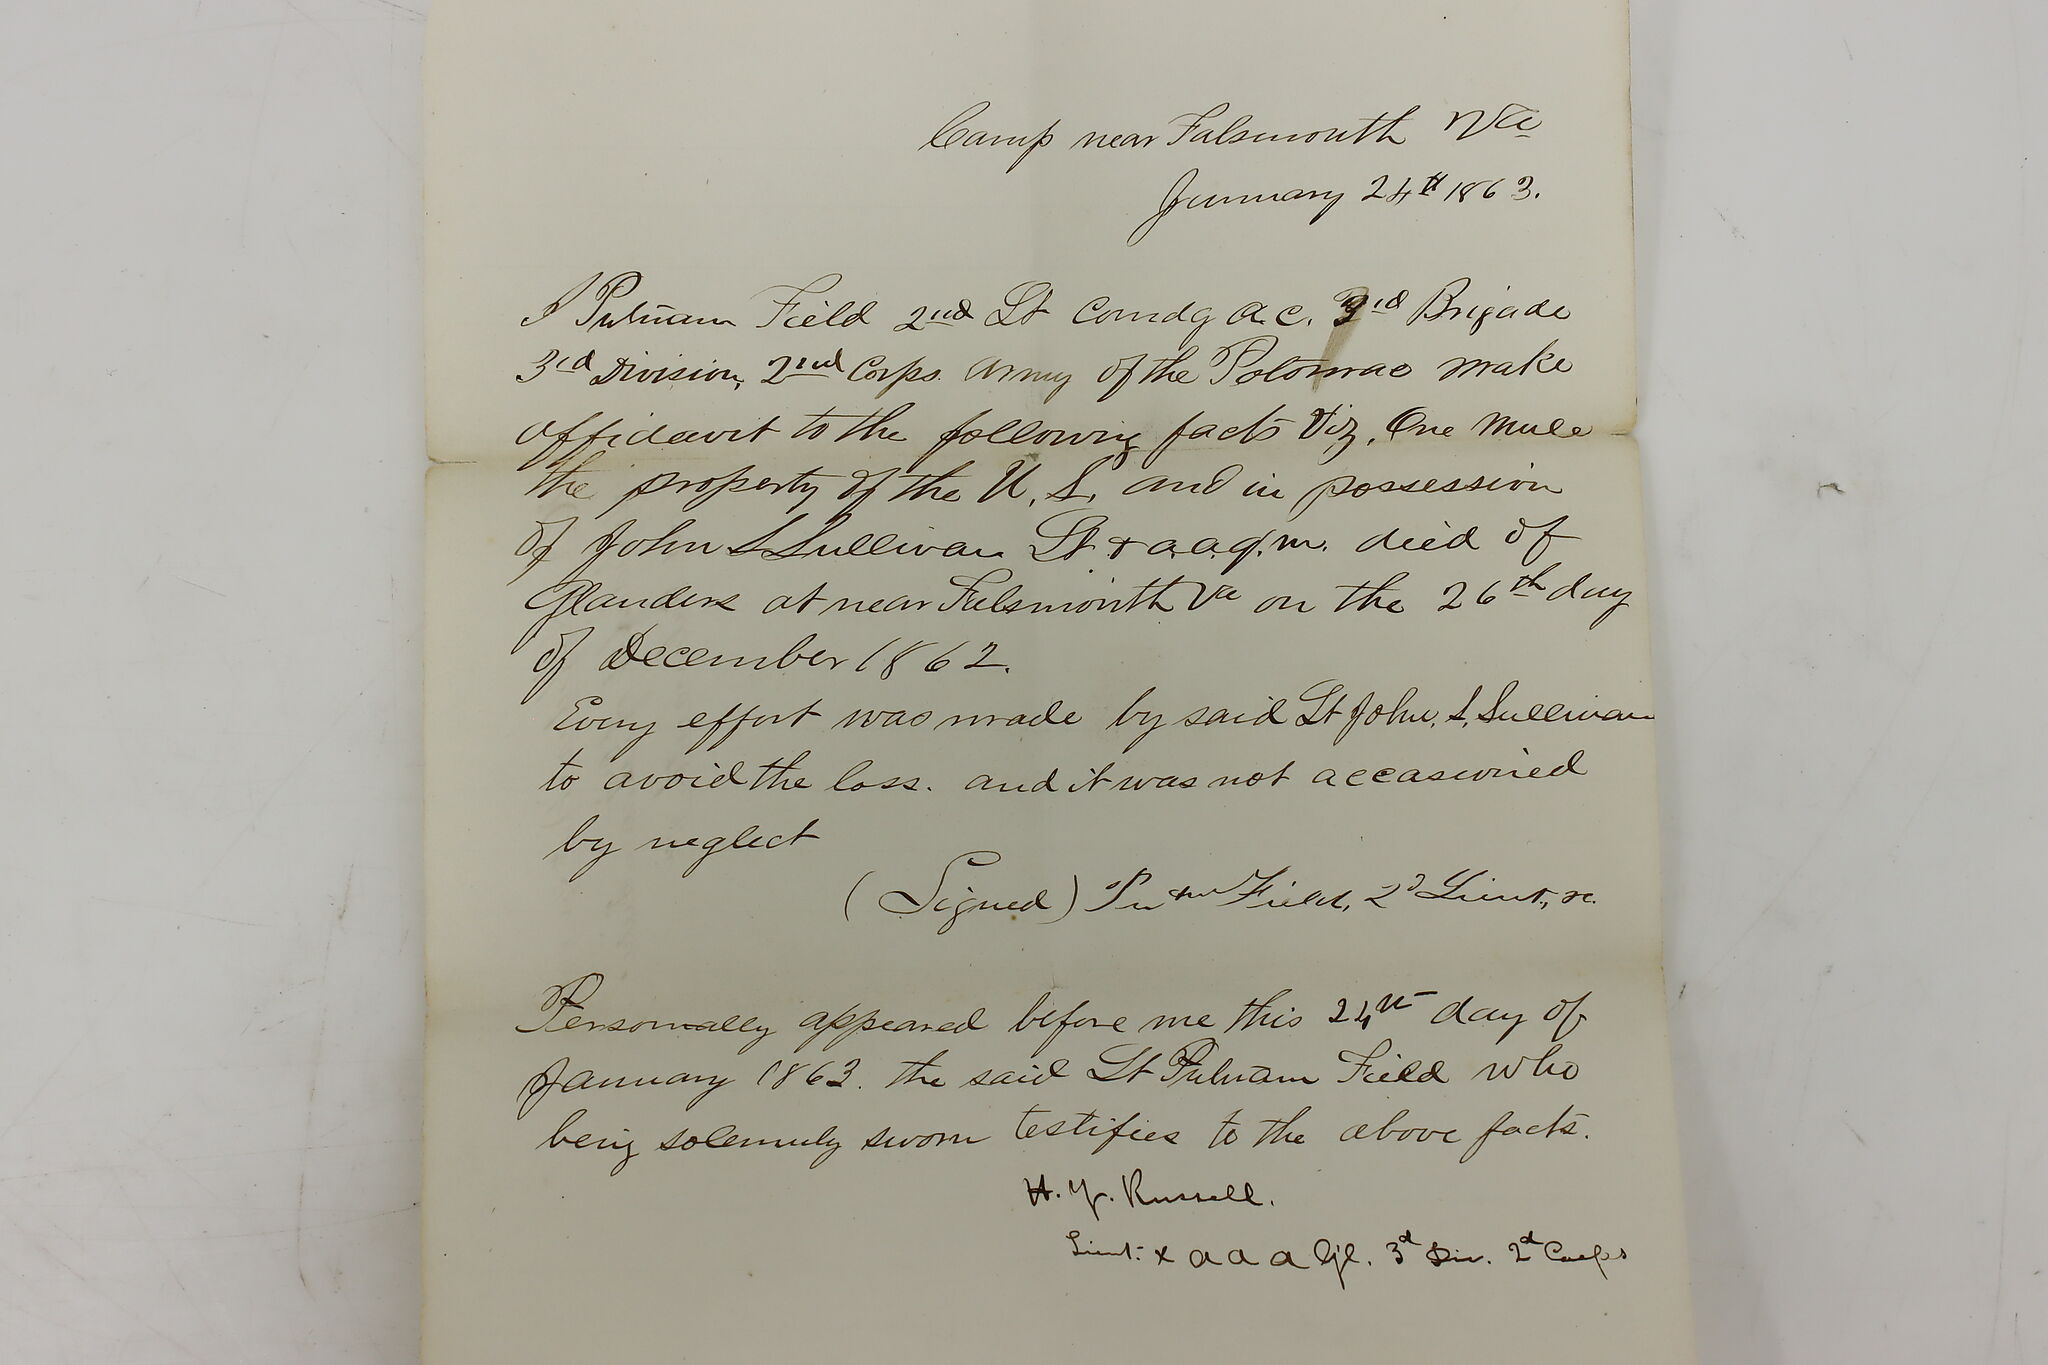 Camp near Falsmouth Va
January 24th 1863.
I Putnam Field 2nd Lt Comdg A.C. 3rd Brigade
3rd Division, 2nd Corps. Army of the Potomac make
affidavit to the following facts Viz. One Mule
the property of the U.S. and in possession
of John S Sullivan Lt & a.a.q.m. died of
Glanders at near Falsmouth Va on the 26th day
of December 1862.
Every effort was made by said Lt John. S. Sullivan
to avoid the loss. and it was not accasioned
by neglect
(Signed) Putnm Field, 2d Lieut, &c.
Personally appeared before me this 24th day of
January 1863. the said Lt Putnam Field who
being solemnly sworn testifies to the above facts.
H. Y. Russell.
Lieut: & a a a Gl. 3d Div. 2d Corps